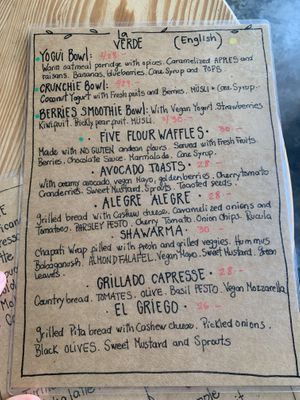 la
VERDE
(English)
YOGUI Bowl:
Warm oatmeal porridge with spices. Caramelized APPLES and
raisans. Bananas, blueberries. Cane Syrup and POPS
CRUNCHIE Bowl:
Coconut Yogurt with Fresh fruits and Berries. MÜSLI + Cane Syrup.
BERRIES SMOOTHIE Bowl: With Vegan Yogurt. Strawberries
Kiwifruit. Prickly pear fruit. MÜSLI.
· FIVE FLOUR WAFFLES · 30 -
Made with NO GLUTEN andean flours. Served with Fresh Fruits.
Berries. Chocolate Sauce. Marmalade. Cane Syrup.
· AVOCADO TOASTS · 28 -
with creamy avocado, vegan Mayo, goldenberries, Cherry tomato
Cranberries. Sweet Mustard. Sprouts. Toasted seeds.
· ALEGRE ALEGRE · 28 -
grilled bread with Cashew cheese. Caramelized onions and
Tomatoes. PARSLEY PESTO. Cherry Tomato. Onion Chips. Rucula
· SHAWARMA · 30 -
Chapati Wrap filled with potato and grilled veggies. Hummus
Babaganush. ALMOND FALAFEL. Vegan Mayo. Sweet Mustard. Green
Leaves.
· GRILLADO CAPRESSE · 28 -
Country bread. TOMATES. OLIVE. Basil PESTO. Vegan Mozzarella
· EL GRIEGO · 26 -
grilled Pita bread with Cashew cheese. Pickled onions.
Black OLIVES. Sweet Mustard and Sprouts